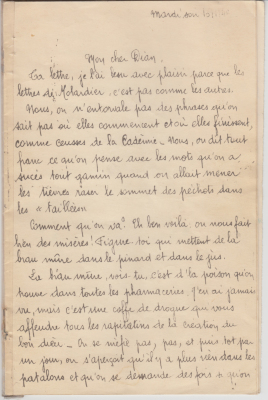 Mardi soir
Mon cher Dian,
Ta lettre, je l'ai lesu avec plaisir parce que les
lettres de Molardier, c'est pas comme les autres.
Nous, on n'entorvale pas des phrases qu'on
sait pas où elles commencent et où elles finissent,
comme ceusses de la Cadémie. Nous, on dit tout
franc ce qu'on pense avec les mots qu'on a
sucés tout gamin quand on allait mener
les lièvres raser le sommet des péchots dans
les
Comment qu'on va? Eh ben voilà, on nous fait
bien des misères! Figure toi qui mettent de la
biau mûre dans le pinard et dans le jus.
La biau mûre, vois-tu, c'est d'la poidon qu'on
trouve dans toutes les pharmaceries. J'en ai jamais
vu, mais c'est une coffe de drogue qui vous
affendru tous les rapitatens de la création du
bon dieu. On se méfie pas, pas, et puis tot par
un jour, on s'aperçoit qu'il y a plus rien dans les
patalons et qu'on se demande des fois si qu'on